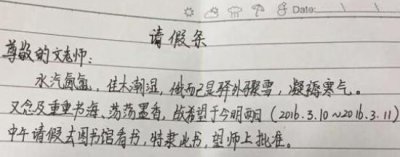 Date:
请假条
尊敬的文老师:
水汽氤氲,佳木潮湿,俄而已是驿外骤雪,凝褐寒气。
又念及重重书海、荡荡墨香,故希望于今明两日(2016.3.10~2016.3.11)
中午请假去图书馆看书,特隶此书,望师上批准。